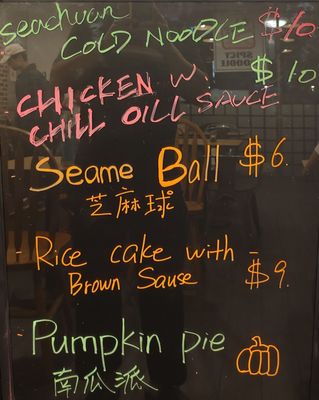 seachuan
COLD NOODLE $10
CHICKEN W. $10
CHILL OILL SAUCE
Seame Ball $6.
芝麻球
Rice cake with
Brown Sause $9.
Pumpkin pie
南瓜派